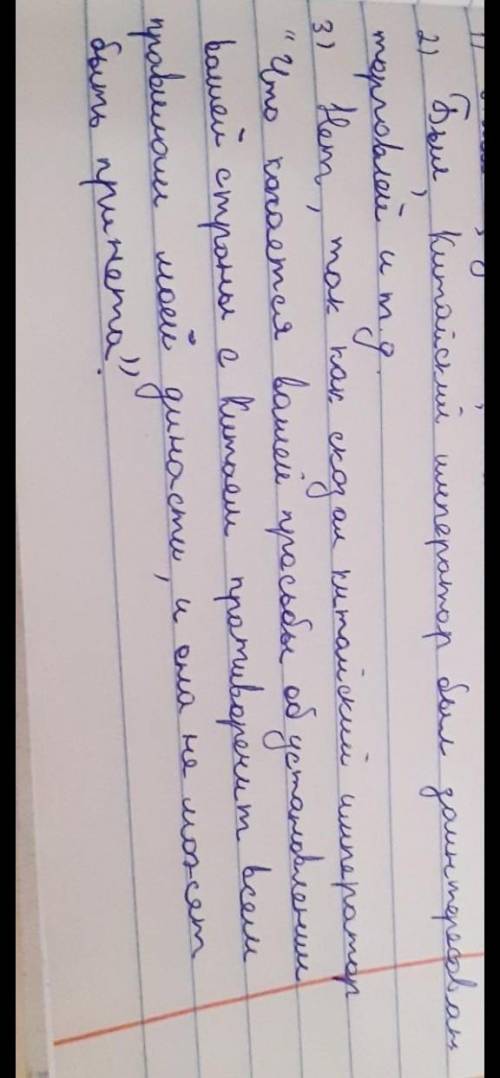 1)
2) Был, Китайский император был заинтересован
торговлей и т.д.
3) Нет, так как сказал китайский император
"Что касается вашей просьбы об установлении
вашей страны с Китаем противоречит всем
правилам моей династи, и она не может
быть принета".